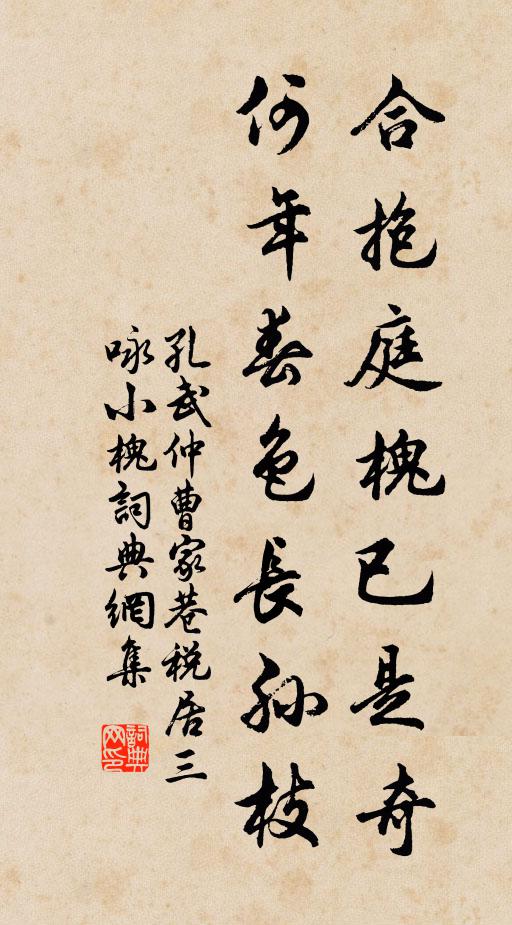 合抱庭槐已是奇
何年春色長孙枝
孔武仲曹家巷税居三
咏小槐詞典網集
詞典网印